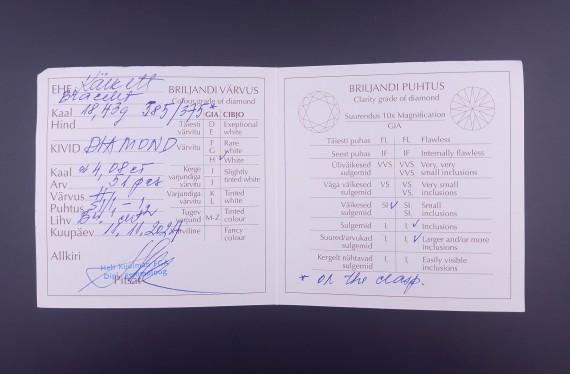 EHE Käekett
Bracelet
Kaal 18,43g 585/375*
Hind
KIVID DIAMOND
Kaal ≈ 4,08 ct
Arv 51 pcs
Värvus H
Puhtus SI₁ - I₁
Lihv
Kuupäev 11.11.2024
Allkiri
Heli Kuulman FGA
Dipl. gemmoloog
Pitsat
BRILJANDI VÄRVUS
Colour grade of diamond
GIA CIBJO
Täiesti värvitu
E white
Värvitu F Rare
G white
H ✓ White
Kerge varjundiga värvitu I Slightly
J tinted white
Varjundiga värvitu K Tinted
L white
Tugev varjund M-Z Tinted colour
Fancy colour
BRILJANDI PUHTUS
Clarity grade of diamond
Suurendus 10x Magnification
GIA
Täiesti puhas FL FL Flawless
Seest puhas IF IF Internally flawless
Üliväikesed sulgemid VVS VVS Very, very
VVS VVS small inclusions
Väga väikesed sulgemid VS VS Very small
VS inclusions
Väikesed sulgemid SI ✓ SI Small
SI inclusions
Sulgemid I I ✓ Inclusions
Suured/arvukad sulgemid I I ✓ Larger and/or more
inclusions
Kergelt nähtavad sulgemid I I Easily visible
inclusions
* on the clasp.